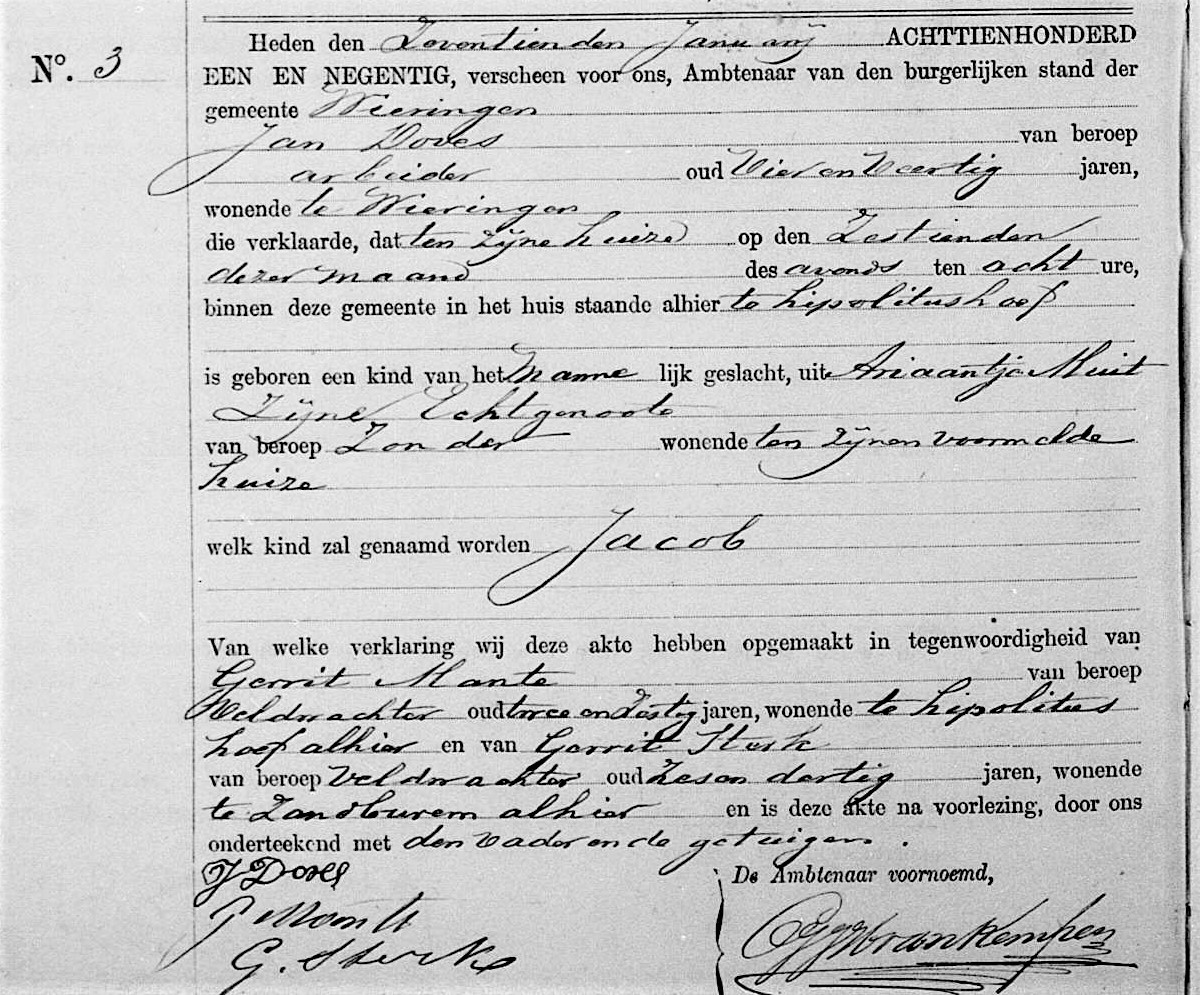 N°. 3
Heden den Zeventienden Januarij ACHTTIENHONDERD
EEN EN NEGENTIG, verscheen voor ons, Ambtenaar van den burgerlijken stand der
gemeente Wieringen
Jan Doves van beroep
arbeider oud Vier en Veertig jaren,
wonende te Wieringen
die verklaarde, dat ten zijne huize op den Zestienden
dezer maand des avonds ten acht ure,
binnen deze gemeente in het huis staande alhier te hipolitushoef
is geboren een kind van het Manne lijk geslacht, uit Ariaantje Muit
Zijne Echtgenoote
van beroep Zonder wonende ten zijnen voormelde
huize
welk kind zal genaamd worden Jacob
Van welke verklaring wij deze akte hebben opgemaakt in tegenwoordigheid van
Gerrit Mante van beroep
Veldwachter oud twee en Zestig jaren, wonende te hipolitus
hoef alhier en van Gerrit Sterk
van beroep Veldwachter oud Zes en dertig jaren, wonende
te Zandburen alhier en is deze akte na voorlezing, door ons
onderteekend met den vader en de getuigen.
J Doves
De Ambtenaar voornoemd,
G. Sterk